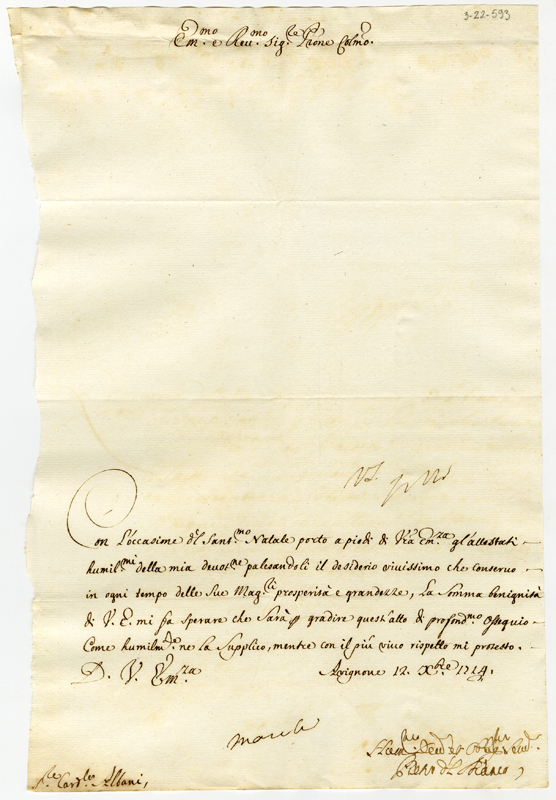 3-22-593
Em.mo e Reu.mo Sig.re Prone Colmo.
Con L'occasione d'l Sant.mo Natale porto a piedi di Vra Em.za gl'attestati
humil.mi della mia deuot.ne palesandoli il desiderio viuissimo che conseruo
in ogni tempo delle Sue Mag.ri prosperità e grandezze, La Somma benignità
di V. E. mi fa sperare che Sarà p gradire quest'atto di profond.mo Ossequio
Come humilm.te ne la Supplico, mentre con il più viuo rispetto mi protesto.
D. V. Em.za
Avignone 12. Xbre 1714.
Card.le Albani,